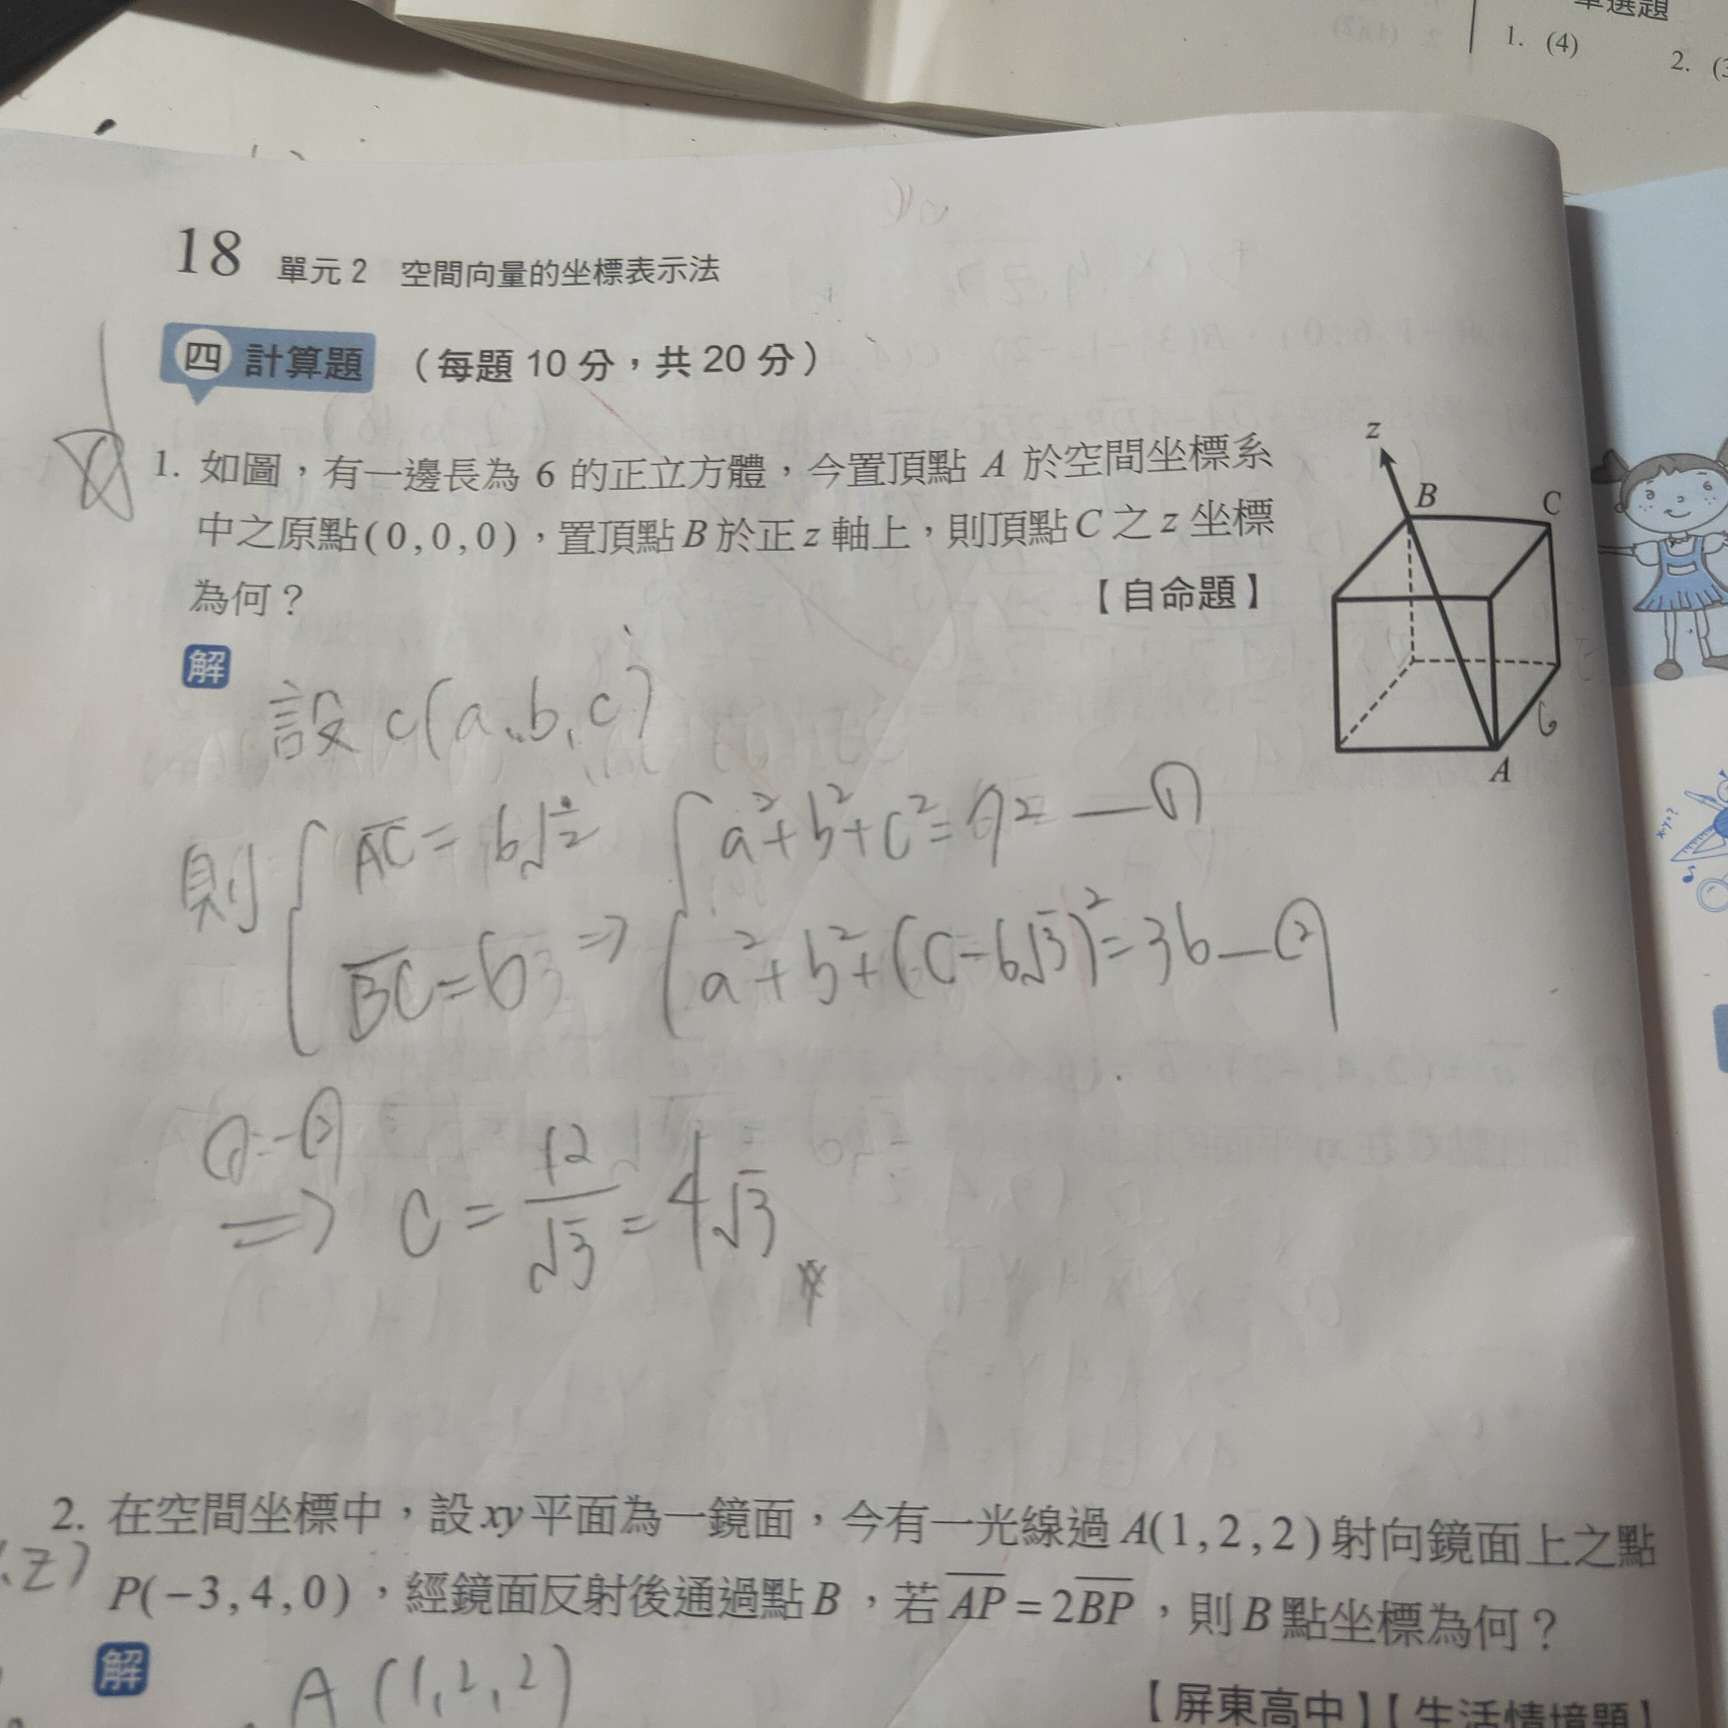 單選題
1. (4)
2. (3
18 單元 2 空間向量的坐標表示法
四 計算題 (每題 10 分，共 20 分)
1. 如圖，有一邊長為 6 的正立方體，今置頂點 A 於空間坐標系
中之原點(0,0,0)，置頂點B於正z軸上，則頂點C之z坐標
為何？ 【自命題】
z
B
C
6
A
解
設 C(a,b,c)
則 { AC = 6√2
BC = 6 ⇒
{ a²+b²+c²=72 —①
a²+b²+(c-6√3)²=36 —②
①-②
⇒ c = 12/√3 = 4√3
2. 在空間坐標中，設xy平面為一鏡面，今有一光線過A(1,2,2)射向鏡面上之點
,z)
P(−3,4,0)，經鏡面反射後通過點B，若AP=2BP，則B點坐標為何？
解
【屏東高中】【生活情境題】
A (1,2,2)